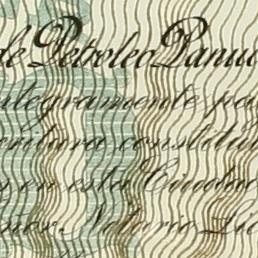 de Petroleo Panuc
ntegramente pa
critura constitu
y en esta Ciudad
ñor Notario Lic